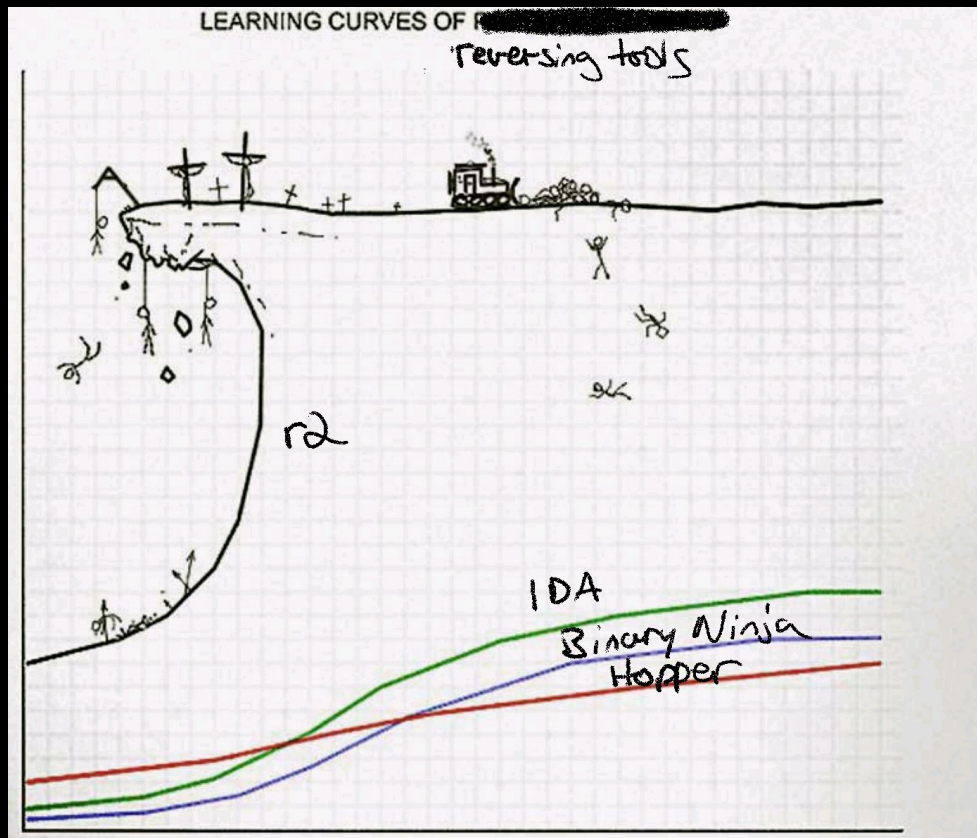 LEARNING CURVES OF
reversing tools
r2
IDA
Binary Ninja
Hopper